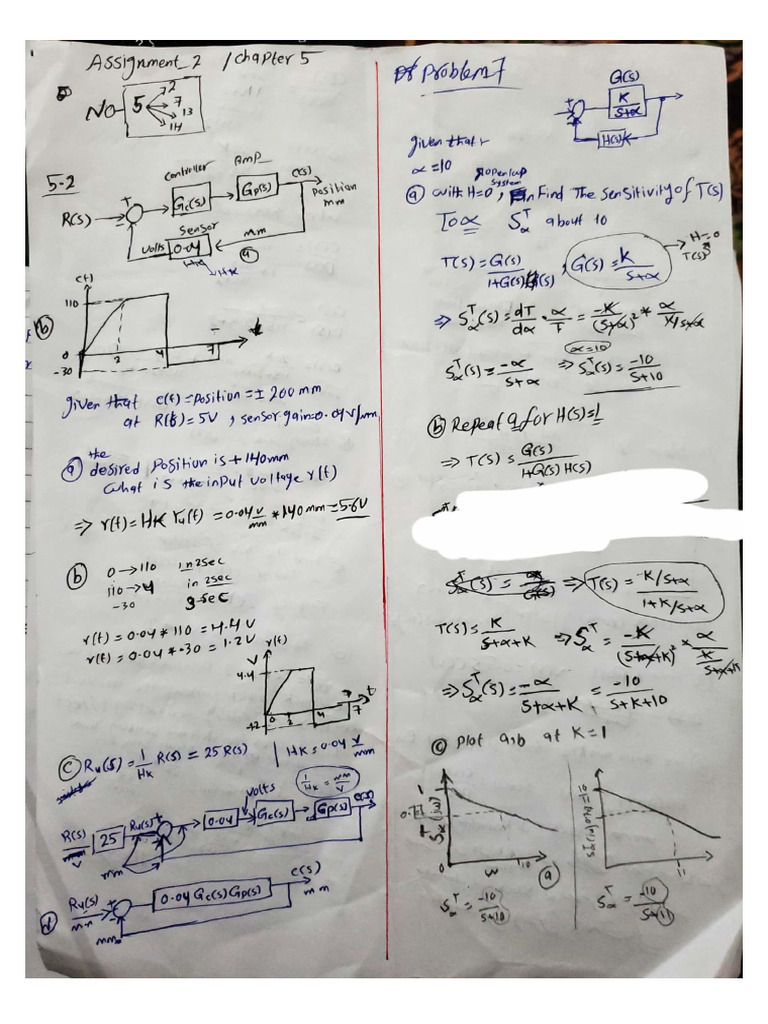 Assignment_2 / chapter 5
No 5
2
7
13
14
5-2
controller
Amp
R(s)
+
-
Gc(s)
Gp(s)
c(s)
position
mm
sensor
volts
0.04
mm
Hk
a
b
c(t)
110
0
2
4
7
-30
given that c(t)=position=±200mm
at R(t)=5V , sensor gain=0.04V/mm
a the
desired position is +140mm
what is the input voltage r(t)
⇒ r(t)=Hk ru(t) =0.04 v/mm *140mm=5.6V
b 0→110 in 2sec
110→4 in 2sec
-30 3-sec
r(t)=0.04*110=4.4V
r(t)=0.04*-30=1.2V
r(t)
V
4.4
0
2
4
7
t
c Ru(s)=1/Hk R(s)=25R(s) | Hk=0.04 V/mm
1/Hk = mm/V
volts
R(s)
V
25
Ru(s)
+
0.04
Gc(s)
Gp(s)
c(s)
mm
d
Ru(s)
mm
+
-
0.04Gc(s)Gp(s)
c(s)
mm
mm
Problem 7
G(s)
+
-
K/s+α
H(s)
given that
α=10
open loop
system
a with H=0, Find The sensitivity of T(s)
To α S^T_α about 10
T(s)=G(s)/1+G(s)H(s) , G(s)=K/s+α
H=0
T(s)
⇒ S^T_α(s)=dT/dα * α/T = -K/(s+α)² * α/K/s+α
S^T_α(s)=-α/s+α α=10 ⇒ S^T_α(s)=-10/s+10
b Repeat a for H(s)=1
⇒ T(s)=G(s)/1+G(s)H(s)
⇒ T(s)=-K/s+α/1+K/s+α
T(s)=K/s+α+K ⇒ S^T_α = -K/(s+α+K)² * α/K/s+α+K
⇒ S^T_α(s)=-α/s+α+K = -10/s+K+10
c plot a,b at K=1
S^T_α(jω)
0
ω
10
a
S^T_α=-10/s+10
11
S^T_α=-10/s+11